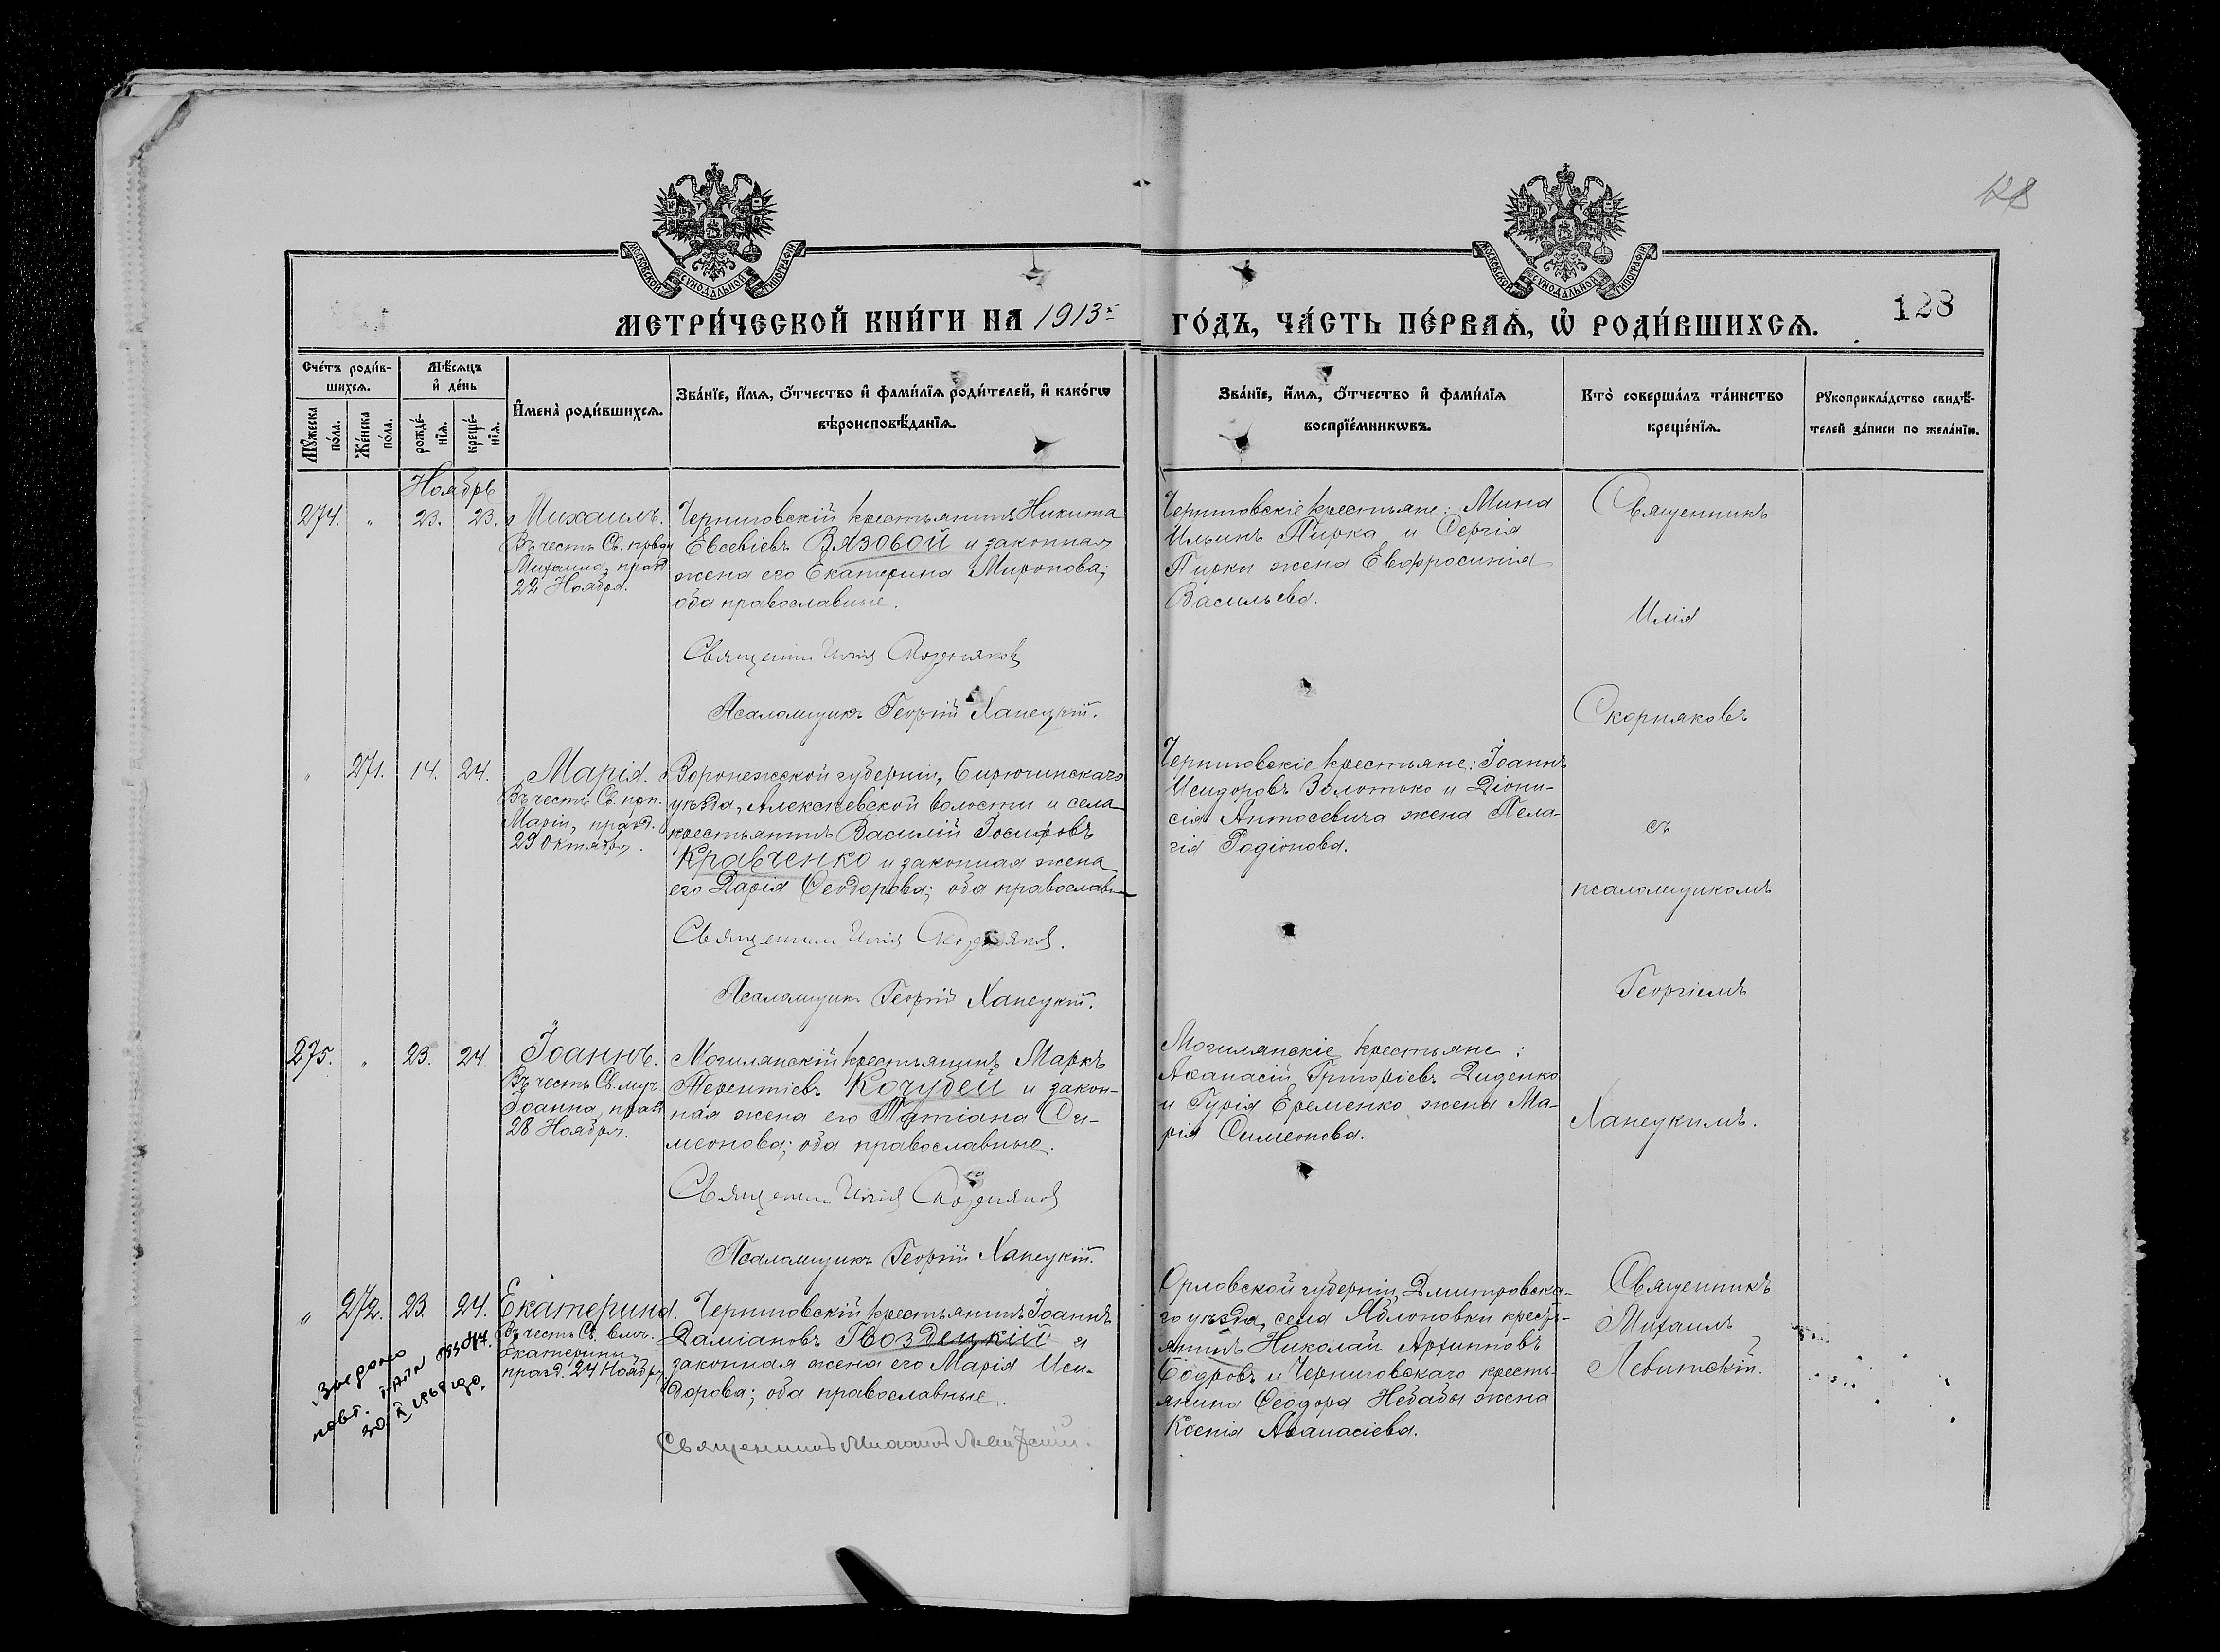 128
МОСКОВСКОЙ СѴНОДАЛЬНОЙ ТИПОГРАФІИ
МОСКОВСКОЙ СѴНОДАЛЬНОЙ ТИПОГРАФІИ
128
МЕТРИ́ЧЕСКОЙ КНИ́ГИ НА 1913 ГО́ДЪ, ЧА́СТЬ ПЕ́РВАѦ, Ѡ҆ РОДИ́ВШИХСѦ.
Сче́тъ роди́в-
шихсѧ.
Мꙋ́жеска по́ла.
Же́нска по́ла.
Мѣ́сѧцъ
и҆ де́нь
рожде́-
нїѧ.
креще́-
нїѧ.
И҆мена̀ роди́вшихсѧ.
Зва́нїе, и҆́мѧ, ѻ҆́тчество и҆ фами́лїѧ роди́телей, и҆ како́гѡ
вѣроисповѣ́данїѧ.
Зва́нїе, и҆́мѧ, ѻ҆́тчество и҆ фами́лїѧ
воспрїе́мникѡвъ.
Кто̀ соверша́лъ та́инство
креще́нїѧ.
Рꙋкоприкла́дство свидѣ́-
телей за́писи по жела́нїю.
Ноябрь
274. " 23. 23.
Михаилъ.
Въ честь Св.
Михаила, празд.
22 Ноября.
Черниговскій крестьянинъ Никита
Евсевіевъ Вязовой и законная
жена его Екатерина Миронова;
оба православные.
Священник Илія Скорняковъ
Псаломщикъ Георгій Ханецкій.
Черниговскіе крестьяне: Мина
Ильинъ Пирка и Сергія
Пирки жена Евфросинія
Васильева.
Священникъ
Илія
Скорняковъ
" 271. 14. 24.
Марія.
Въ честь Св. преп.
Маріи, празд.
29 Октября.
Воронежской губерніи, Бирючинскаго
уѣзда, Алексѣевской волости и села
крестьянинъ Василій Іосифовъ
Кравченко и законная жена
его Дарія Ѳеодорова; оба православн
Священник Илія Скорняков.
Псаломщик Георгій Ханецкій.
Черниговскіе крестьяне: Іоаннъ
Исидоровъ Золотько и Діони-
сія Антосевича жена Пела-
гія Родіонова.
съ
псаломщикомъ
Георгіемъ
275. " 23. 24.
Іоаннъ.
Въ честь Св. муч.
Іоанна, празд.
28 Ноября.
Могилянскій крестьянинъ Маркъ
Терентіевъ Кочубей и закон-
ная жена его Татіана Си-
меонова; оба православные.
Священник Илія Скорняков
Псаломщикъ Георгій Ханецкій.
Могилянскіе крестьяне:
Аѳанасій Григоріевъ Диденко
и Гурія Еременко жена Ма-
рія Симеонова.
Ханецкимъ.
" 272. 23. 24.
Екатерина.
Въ честь Св. влмч.
Екатерины,
празд. 24 Ноября.
Черниговскій крестьянинъ Іоаннъ
Даміановъ Гвоздецкій и
законная жена его Марія Иси-
дорова; оба православные.
Священникъ Михаилъ Левитскій.
Орловской губерніи, Дмитровска-
го уѣзда, села Яблоновки кресть-
янинъ Николай Архиповъ
Бодровъ и Черниговскаго кресть-
янина Ѳеодора Небабы жена
Ксенія Аѳанасіева.
Священникъ
Михаилъ
Левитскій.